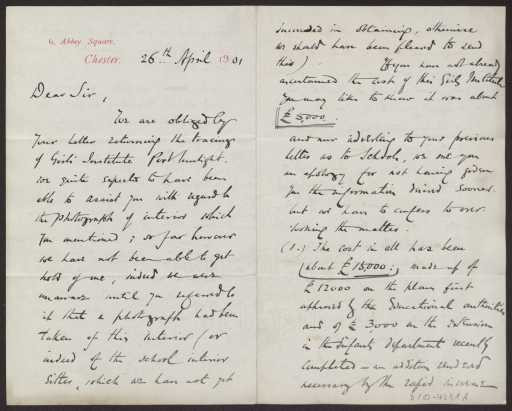 6, Abbey Square,
Chester. 26th April 1901
Dear Sir,
We are obliged by
your letter returning the tracing
of Girls' Institute Port Sunlight.
We quite expected to have been
able to assist you with regard to
the photograph of interior which
you mentioned; so far however
we have not been able to get
hold of one, indeed we were
unaware until you referred to
it that a photograph had been
taken of this interior (or
indeed of the school interior
either, which we have not yet
succeeded in obtaining, otherwise
we should have been pleased to send
this). If you have not already
ascertained the cost of this Girls Institute
you may like to know it was about
£5,000.
and now adverting to your previous
letter as to Schools, we owe you
an apology for not having given
you the information desired sooner.
but we have to confess to over-
looking the matter.
(1.) The cost in all has been
(about £15,000:) made up of
£12000 on the plans first
approved by the Educational authorities
and of £3000 on the extension
in the Infants department recently
completed – an addition rendered
necessary by the rapid increase